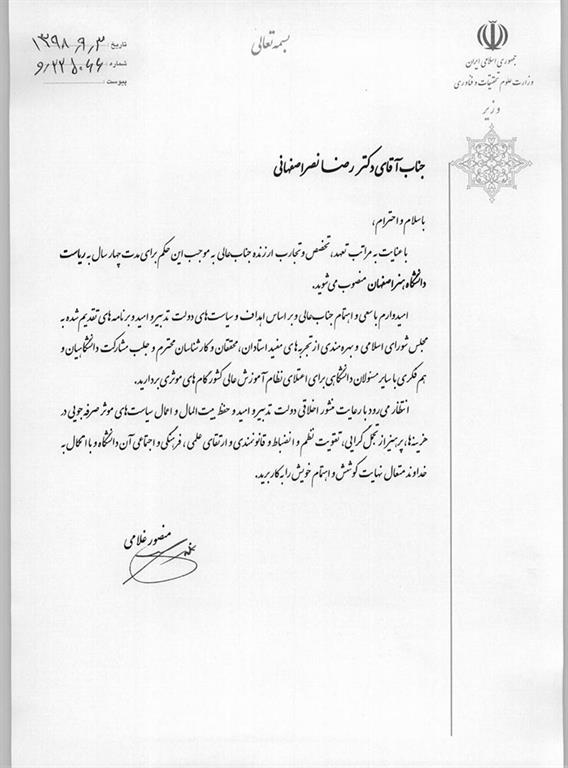 بسمه تعالی
جمهوری اسلامی ایران
وزارت علوم تحقیقات و فناوری
وزیر
تاریخ : ۱۳۹۸٫۹٫۳
شماره :
پیوست :
جناب آقای دکتر رضا نصر اصفهانی
با سلام و احترام،
با عنایت به مراتب تعهد، تخصص و تجارب ارزنده جناب‌عالی به موجب این حکم برای مدت چهار سال به ریاست
دانشگاه هنر اصفهان منصوب می‌شوید.
امیدوارم با سعی و اهتمام جناب‌عالی و بر اساس اهداف و سیاست‌های دولت تدبیر و امید و برنامه های تقدیم شده به
مجلس شورای اسلامی و بهره مندی از تجربه های مفید استادان، محققان و کارشناسان محترم و جلب مشارکت دانشگاهیان و
هم فکری با سایر مسئولان دانشگاهی برای اعتلای نظام آموزش عالی کشور گام های موثری بردارید.
انتظار می‌رود با رعایت منشور اخلاقی دولت تدبیر و امید و حفظ بیت المال و اعمال سیاست‌های موثر صرفه جویی در
هزینه ها، پرهیز از تجمل گرایی، تقویت نظم و انضباط و قانونمندی و ارتقای علمی، فرهنگی و اجتماعی آن دانشگاه و با اتکال به
خداوند متعال نهایت کوشش و اهتمام خویش را به کار برید.
منصور غلامی